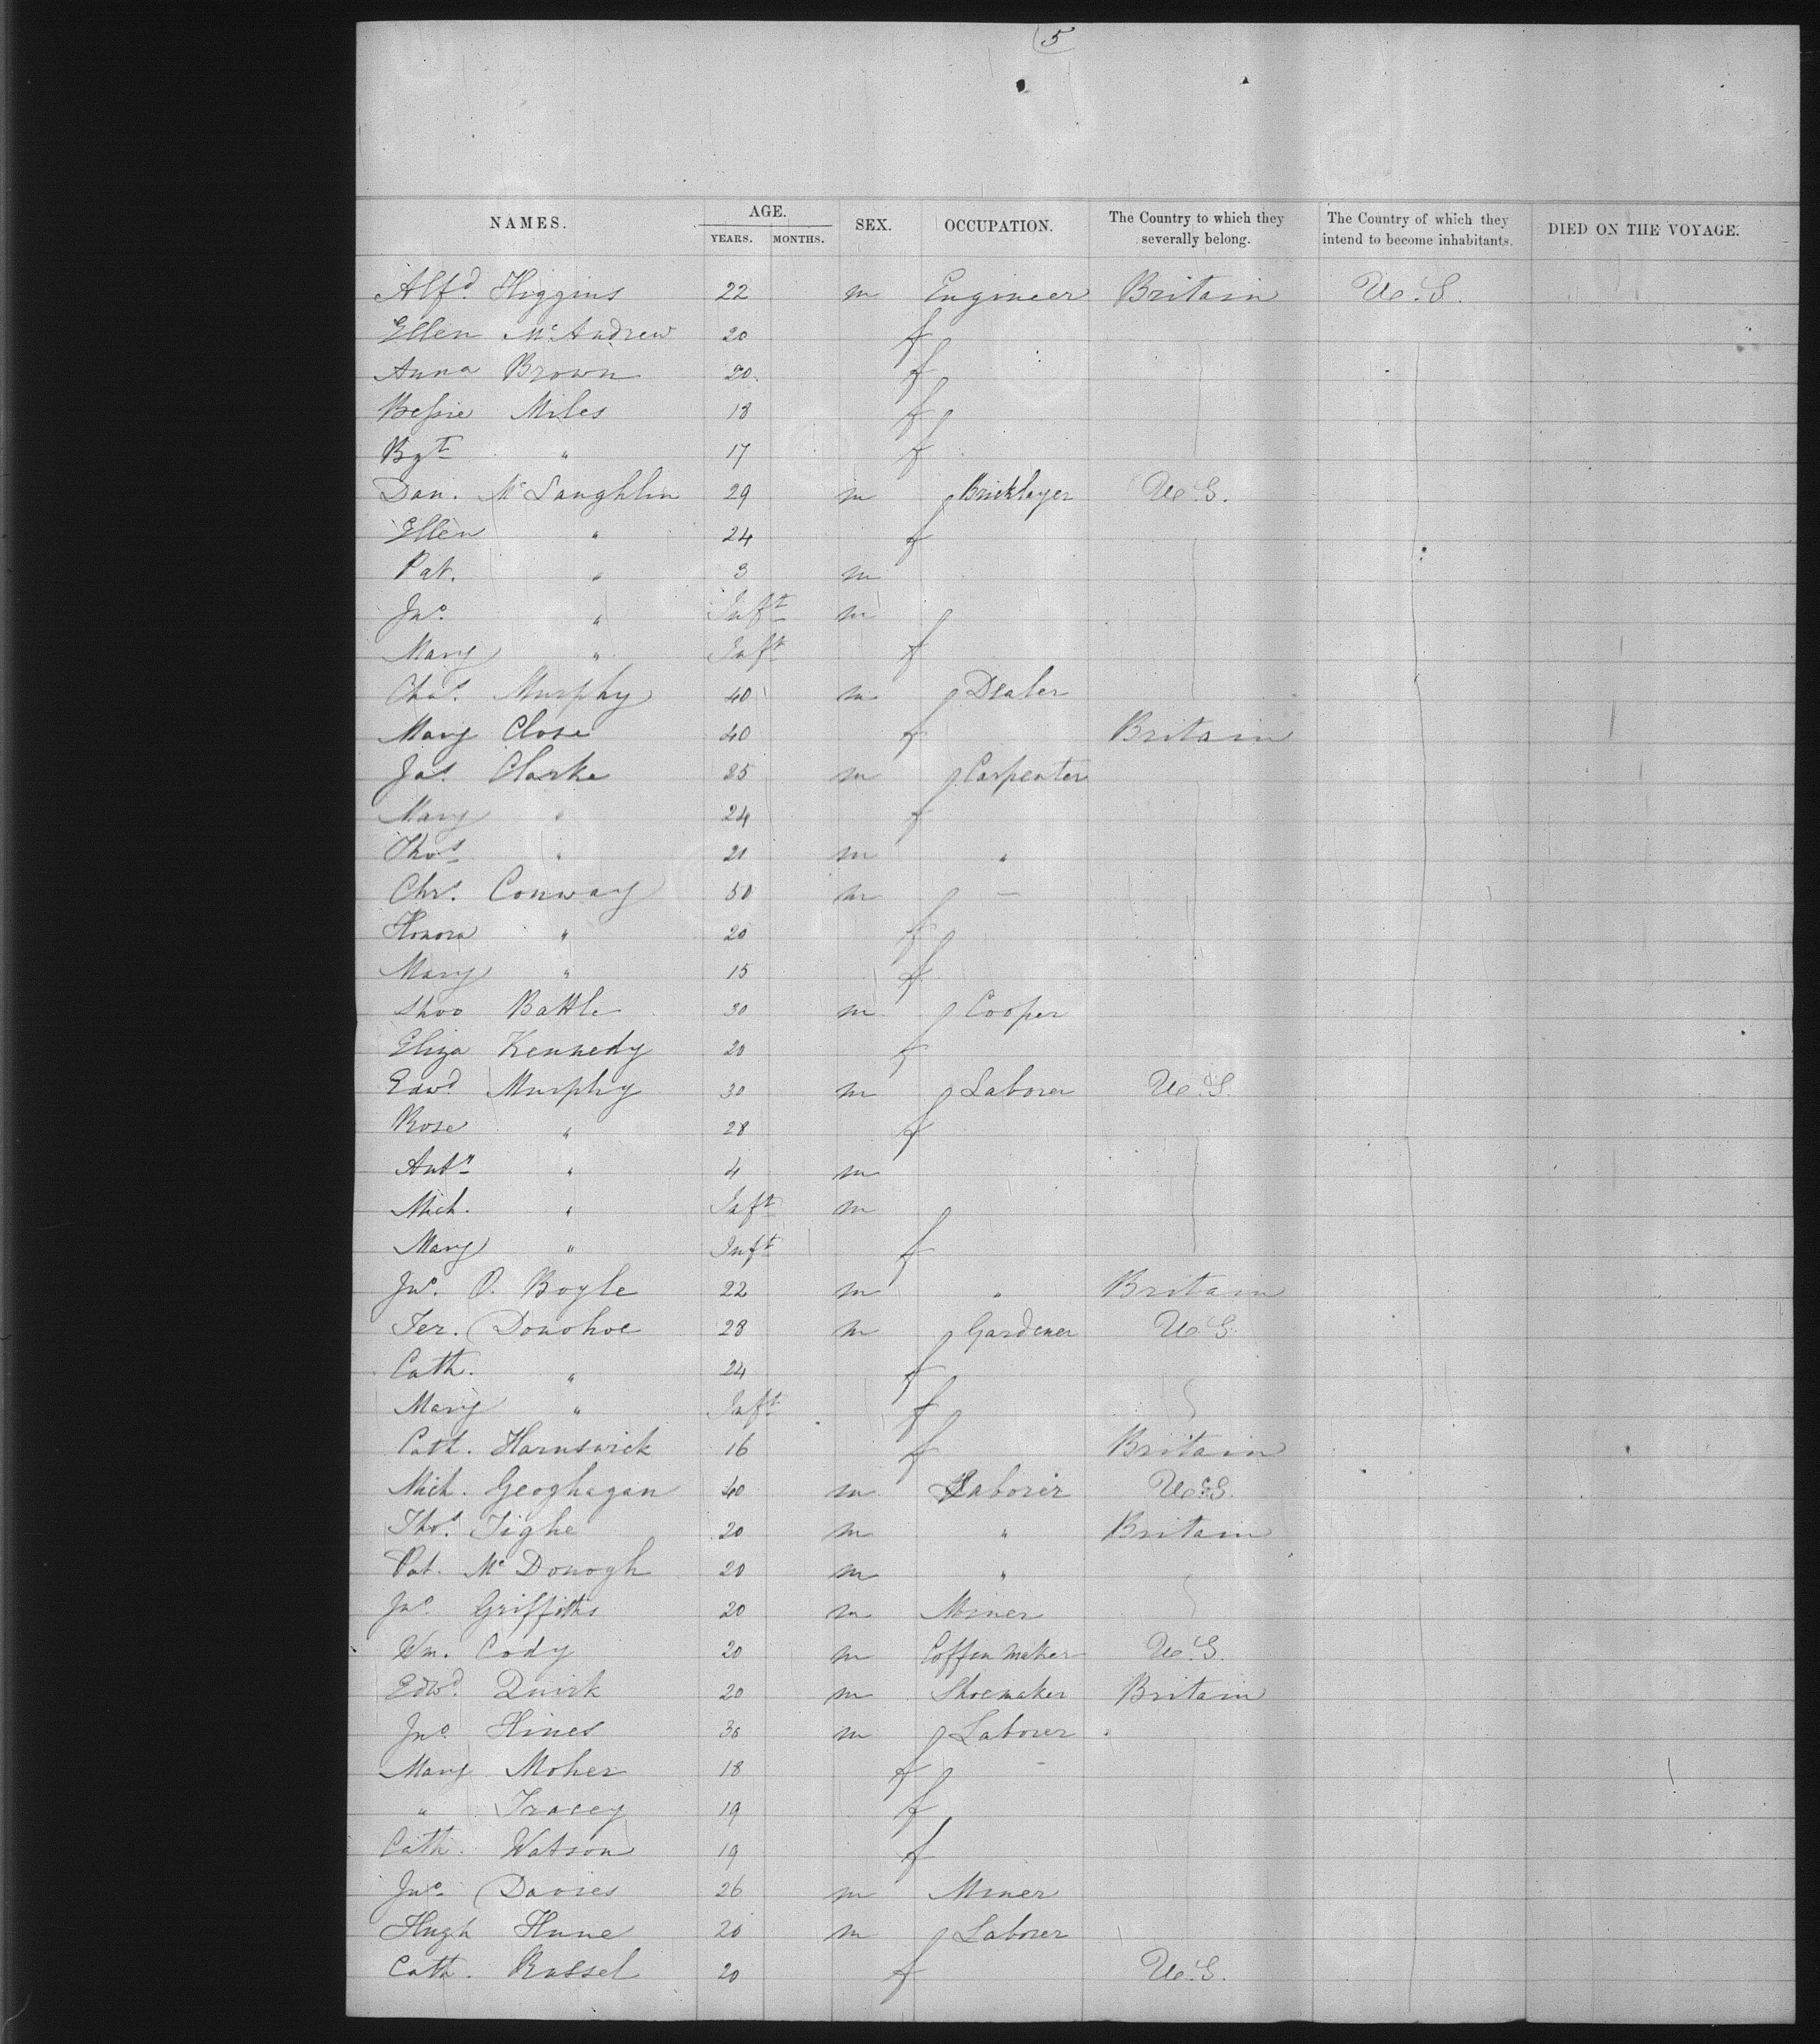 5
NAMES. AGE. YEARS. MONTHS. SEX. OCCUPATION. The Country to which they severally belong. The Country of which they intend to become inhabitants. DIED ON THE VOYAGE.
Alfd. Higgins 22 m Engineer Britain U.S.
Ellen McAndrew 20 f
Anna Brown 20 f
Bessie Miles 18 f
Bgt " 17 f
Dan. McLaughlin 29 m Bricklayer U.S.
Ellen " 24 f
Pat. " 3 m
Jno. " Inft m
Mary " Inft f
Chas. Murphy 40 m Dealer
Mary Close 40 f Britain
Jas. Clarke 25 m Carpenter
Mary " 24 f
Thos " 21 m "
Chr. Conway 50 m –
Honora " 20 f
Mary " 15 f
Battle 30 m Cooper
Eliza Kennedy 20 f
Edwd Murphy 30 m Laborer U.S.
Rose " 28 f
Anty " 4 m
Mich. " Inft m
Mary " Inft f
Jno. O. Boyle 22 m " Britain
Ter. Donohoe 28 m Gardener U.S.
Cath. " 24 f
Mary " Inft f
Cath. Harnswick 16 f Britain
Mich. Geoghagan 40 m Laborer U.S.
Thos. Tighe 20 m " Britain
Pat. McDonogh 20 m "
Jno. Griffiths 20 m Miner
Wm. Cody 20 m Coffin maker U.S.
Edwd. Quirk 20 m Shoemaker Britain
Jno. Hines 30 m Laborer "
Mary Moher 18 f –
" Tracey 19 f
Cath. Watson 19 f
Jno. Davies 26 m Miner
Hugh Hune 20 m Laborer
Cath. Russel 20 f U.S.